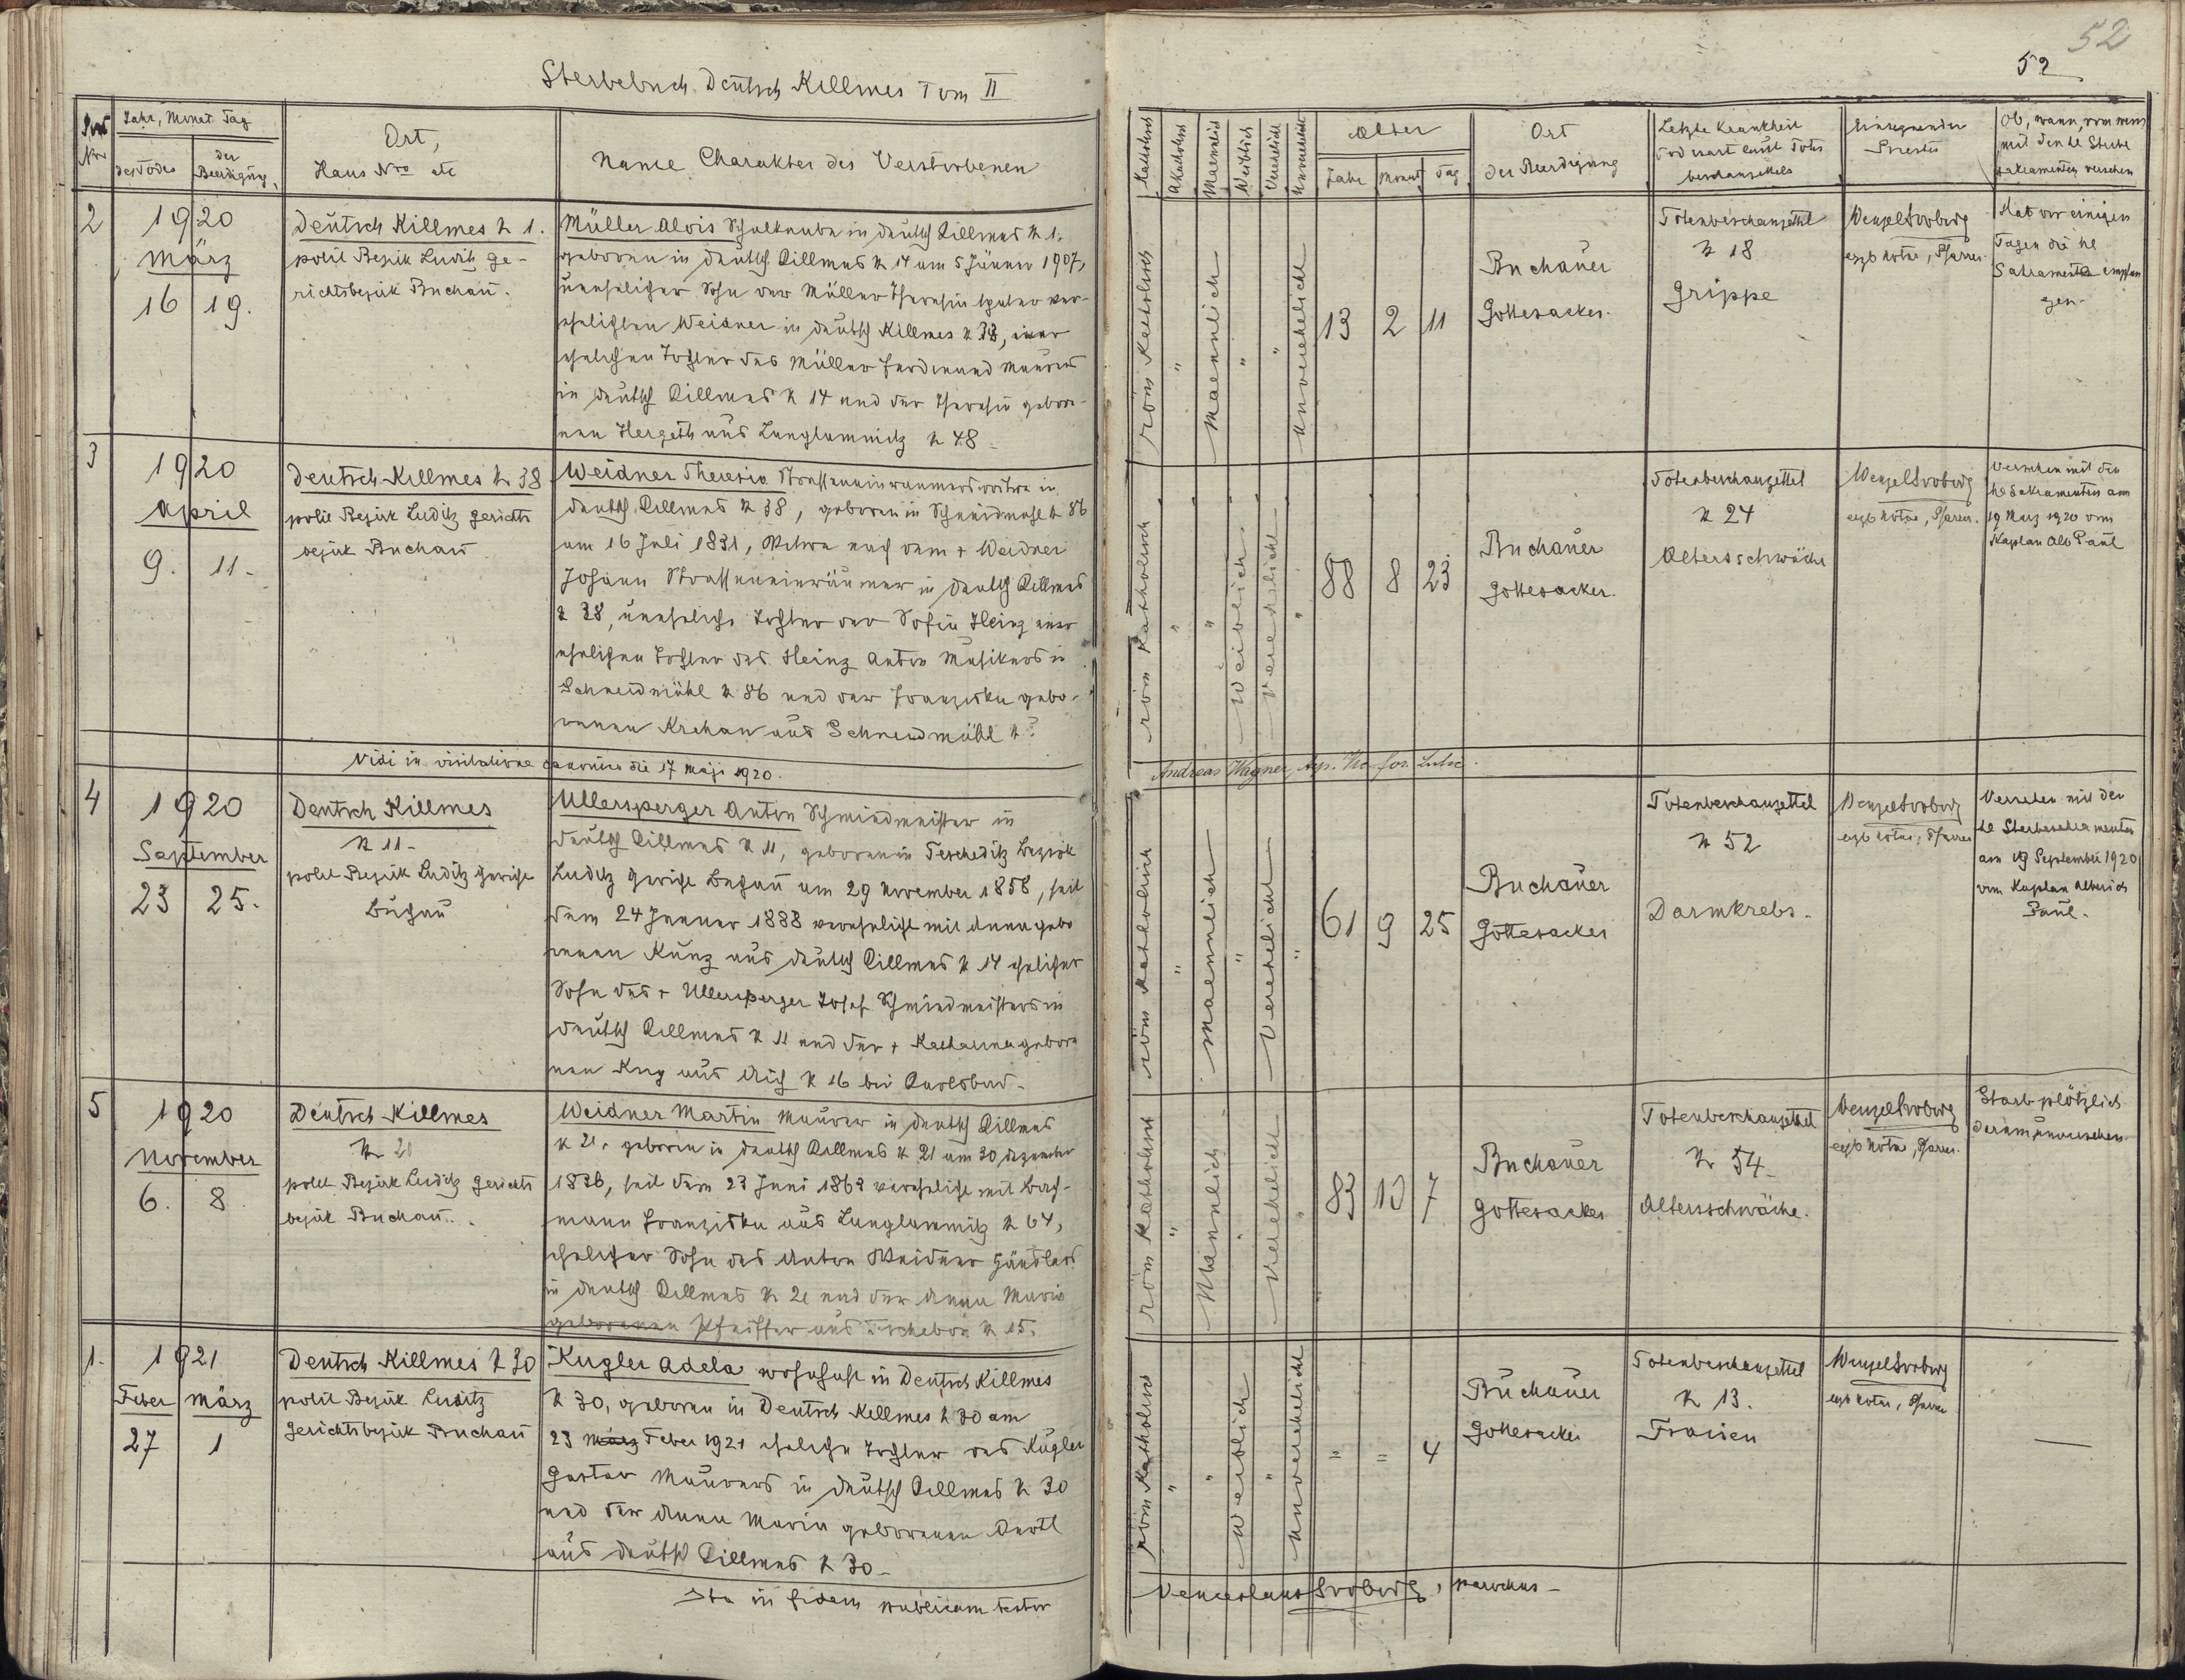 52
52
Sterbebuch Deutsch Killmes Tom II
Post Nro
Jahr, Monat Tag
des Todes
der Beerdigung
Ort,
Haus Nro etc
Name Charakter des Verstorbenen
Katholisch
Akatholisch
Maennlich
Weiblich
Verehelicht
Unverehelicht
Alter
Jahr
Monat
Tag
Ort
der Beerdigung
Letzte Krankheit
Todesart laut Toten
beschauzettels
Einsegnender
Priester
Ob, wann, vom wem
mit den hl Sterbe
sakramenten versehen
2
1920
März
16 19.
Deutsch Killmes N 1.
polit Bezirk Luditz ge-
richtsbezirk Buchau.
Müller Alois Schulknabe in Deutsch Killmes N 1.
geboren in Deutsch Killmes N 14 am 5 Jänner 1907,
unehelicher Sohn der Müller Theresia später ver-
ehelichten Weidner in Deutsch Killmes N 38, einer
ehelichen Tochter des Müller Ferdinand Maurers
in Deutsch Killmes N 14 und der Theresia gebore-
nen Hergeth aus Langlamnitz N 48
röm Katholisch
"
Maennlich
"
"
Unverehelicht
13 2 11
Buchauer
Gottesacker.
Totenbeschauzettel
N 18
Grippe
Wenzel Svoboda
Pfarrer.
Hat vor einigen
Tagen die hl
Sakramente empfan
gen-
3
1920
April
9. 11-
Deutsch Killmes N 38
polit Bezirk Luditz Gerichts
bezirk Buchau
Weidner Theresia Strasseneinräumerswitwe in
Deutsch Killmes N 38, geboren in Schneidmühl N 86
am 16 Juli 1831, Witwe nach dem + Weidner
Johann Strasseneinräumer in Deutsch Killmes
N 38, uneheliche Tochter der Sofia Heinz einer
ehelichen Tochter des Heinz Anton Musikers in
Schneidmühl N 86 und der Franziska gebo-
renen Krehan aus Schneidmühl N ?
röm Katholisch
"
"
Weiblich
Verehelicht
"
88 8 23
Buchauer
Gottesacker.
Totenbeschauzettel
N 24
Altersschwäche
Wenzel Svoboda
Pfarrer.
Versehen mit den
hl Sakramenten am
19 März 1920 vom
Kaplan Alb Paul
Vidi in visitatione canonica die 17 Maji 1920.
Andreas Wagner,
4
1920
September
23 25.
Deutsch Killmes
N 11-
polit Bezirk Luditz Gericht
Buchau
Ullersperger Anton Schmiedmeister in
Deutsch Killmes N 11, geboren in Teschetitz Bezirk
Luditz Gericht Buchau am 29 November 1858, seit
dem 24 Jänner 1888 verehelicht mit Anna gebo
renen Kunz aus Deutsch Killmes N 14 ehelicher
Sohn des + Ullersperger Josef Schmiedmeisters in
Deutsch Killmes N 11 und der + Katharina gebore
nen Krug aus Aich N 16 bei Karlsbad-
röm Katholisch
"
Maennlich
"
Verehelicht
"
61 9 25
Buchauer
Gottesacker
Totenbeschauzettel
N 52
Darmkrebs-
Wenzel Svoboda
Pfarrer
Versehen mit den
hl Sterbesakramenten
am 19 September 1920
vom Kaplan Alberich
Paul-
5
1920
November
6. 8
Deutsch Killmes
N 20
polit Bezirk Luditz Gerichts
bezirk Buchau.
Weidner Martin Maurer in Deutsch Killmes
N 21, geboren in Deutsch Killmes N 21 am 30 Dezember
1836, seit dem 23 Juni 1863 verehelicht mit Bach-
mann Franziska aus Langlamnitz N 64,
ehelicher Sohn des Anton Weidner Händlers
in Deutsch Killmes N 21 und der Anna Maria
geborenen Pfeiffer aus Tschebon N 15.
röm Katholisch
"
Männlich
"
Verehelicht
"
83 10 7
Buchauer
Gottesacker
Totenbeschauzettel
N 54-
Altersschwäche.
Wenzel Svoboda
Pfarrer.
Starb plötzlich
darum unversehen
1.
1921
Feber März
27 1
Deutsch Killmes N 30
polit Bezirk Luditz
Gerichtsbezirk Buchau
Kugler Adela wohnhaft in Deutsch Killmes
N 30, geboren in Deutsch Killmes N 30 am
23 März Feber 1921 eheliche Tochter des Kugler
Gustav Maurers in Deutsch Killmes N 30
und der Anna Maria geborenen Bartl
aus Deutsch Killmes N 30-
röm Katholisch
"
"
Weiblich
"
Unverehelicht
= = 4
Buchauer
Gottesacker
Totenbeschauzettel
N 13.
Fraisen
Wenzel Svoboda
Pfarrer
—
Ita in fidem publicam testor
Venceslaus Svoboda, parochus-